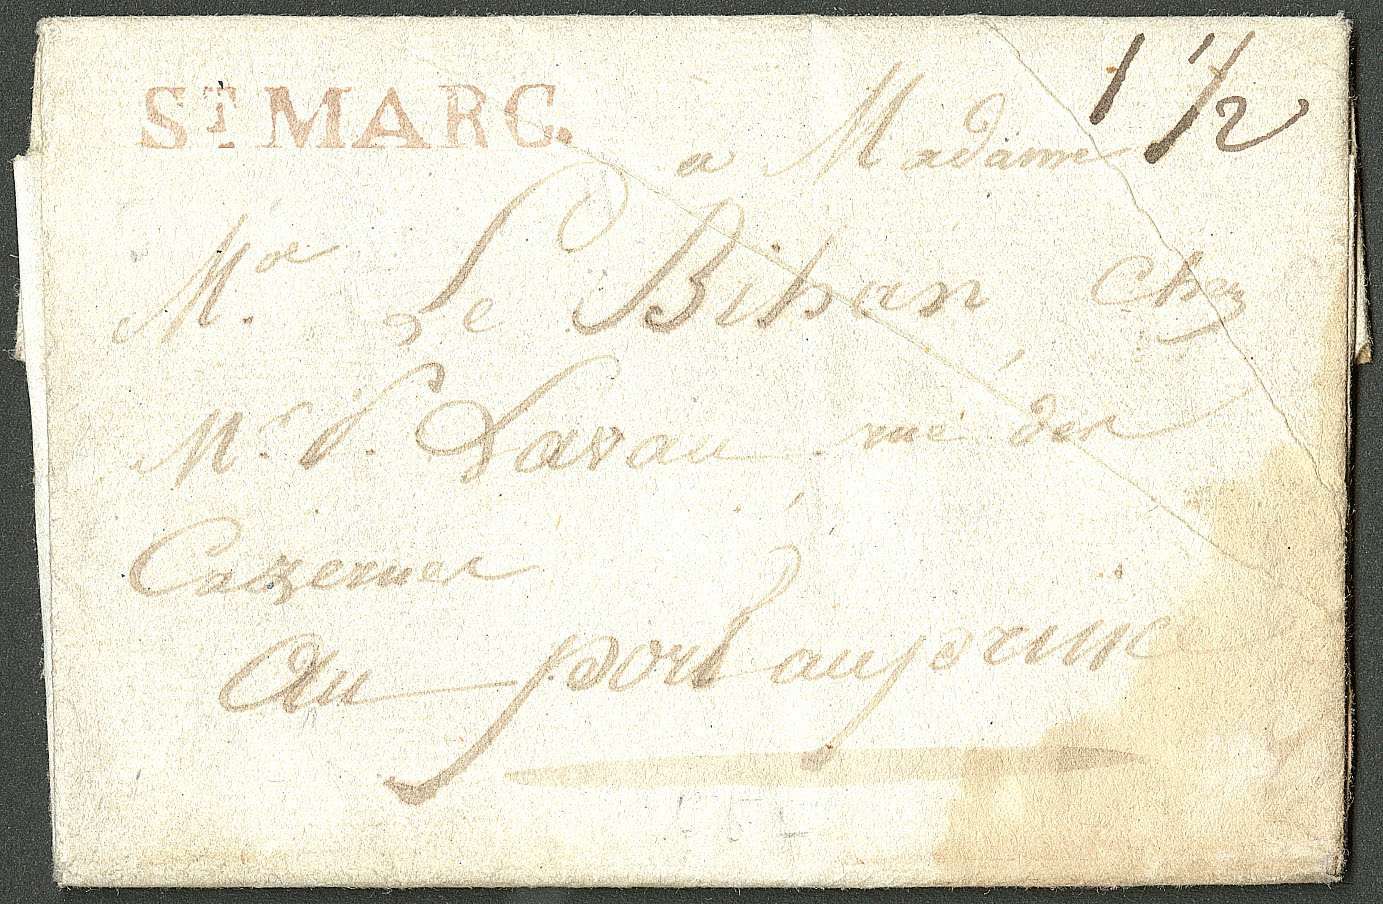 ST MARC.
1 1/2
a Madame
Mde. Le Bihan Chez
Mr. P. Lavau rue des
Cazernes
Au port au prince